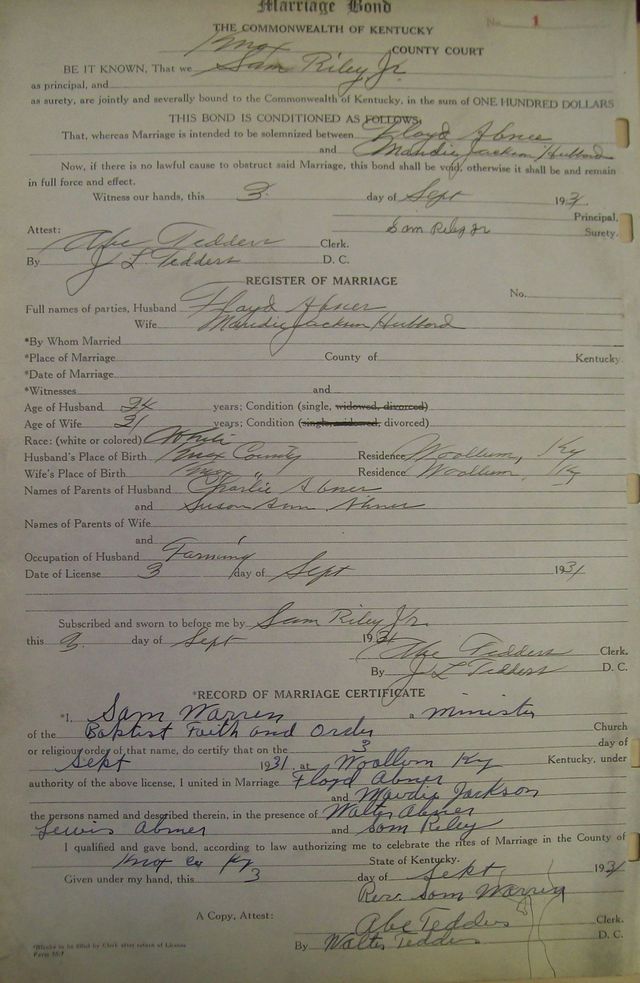 Marriage Bond
No. 1
THE COMMONWEALTH OF KENTUCKY
Knox COUNTY COURT
BE IT KNOWN, That we Sam Riley, Jr.
as principal, and
as surety, are jointly and severally bound to the Commonwealth of Kentucky, in the sum of ONE HUNDRED DOLLARS
THIS BOND IS CONDITIONED AS FOLLOWS:
That, whereas Marriage is intended to be solemnized between Floyd Abner
and Maudie Jackson Hubbord
Now, if there is no lawful cause to obstruct said Marriage, this bond shall be void, otherwise it shall be and remain
in full force and effect.
Witness our hands, this 3 day of Sept 1931.
Principal.
Attest: Sam Riley Jr Surety.
Abe Tedders Clerk.
By J L Tedders D. C.
REGISTER OF MARRIAGE
No.
Full names of parties, Husband Floyd Abner
Wife Maudie Jackson Hubbord
*By Whom Married
*Place of Marriage County of Kentucky.
*Date of Marriage
*Witnesses and
Age of Husband 24 years; Condition (single, widowed, divorced)
Age of Wife 21 years; Condition (single, widowed, divorced)
Race: (white or colored) White
Husband's Place of Birth Knox County Residence Woollum, Ky
Wife's Place of Birth Knox " Residence Woollum, Ky
Names of Parents of Husband Charlie Abner
and Susan Ann Abner
Names of Parents of Wife
and
Occupation of Husband Farming
Date of License 3 day of Sept 1931
Subscribed and sworn to before me by Sam Riley Jr.
this 3. day of Sept 1931
Abe Tedders Clerk.
By J L Tedders D. C.
*RECORD OF MARRIAGE CERTIFICATE
*I, Sam Warren a minister
of the Baptist Faith and Order Church
or religious order of that name, do certify that on the 3 day of
Sept 1931, at Woollum Ky Kentucky, under
authority of the above license, I united in Marriage Floyd Abner
and Maudie Jackson
the persons named and described therein, in the presence of Walter Abner
Lewis Abner and Sam Riley
I qualified and gave bond, according to law authorizing me to celebrate the rites of Marriage in the County of
Knox Co Ky State of Kentucky.
Given under my hand, this 3 day of Sept 1931
Rev. Sam Warren
A Copy, Attest: Abe Tedders Clerk.
By Walter Tedders D. C.
*Blanks to be filled by Clerk after return of License